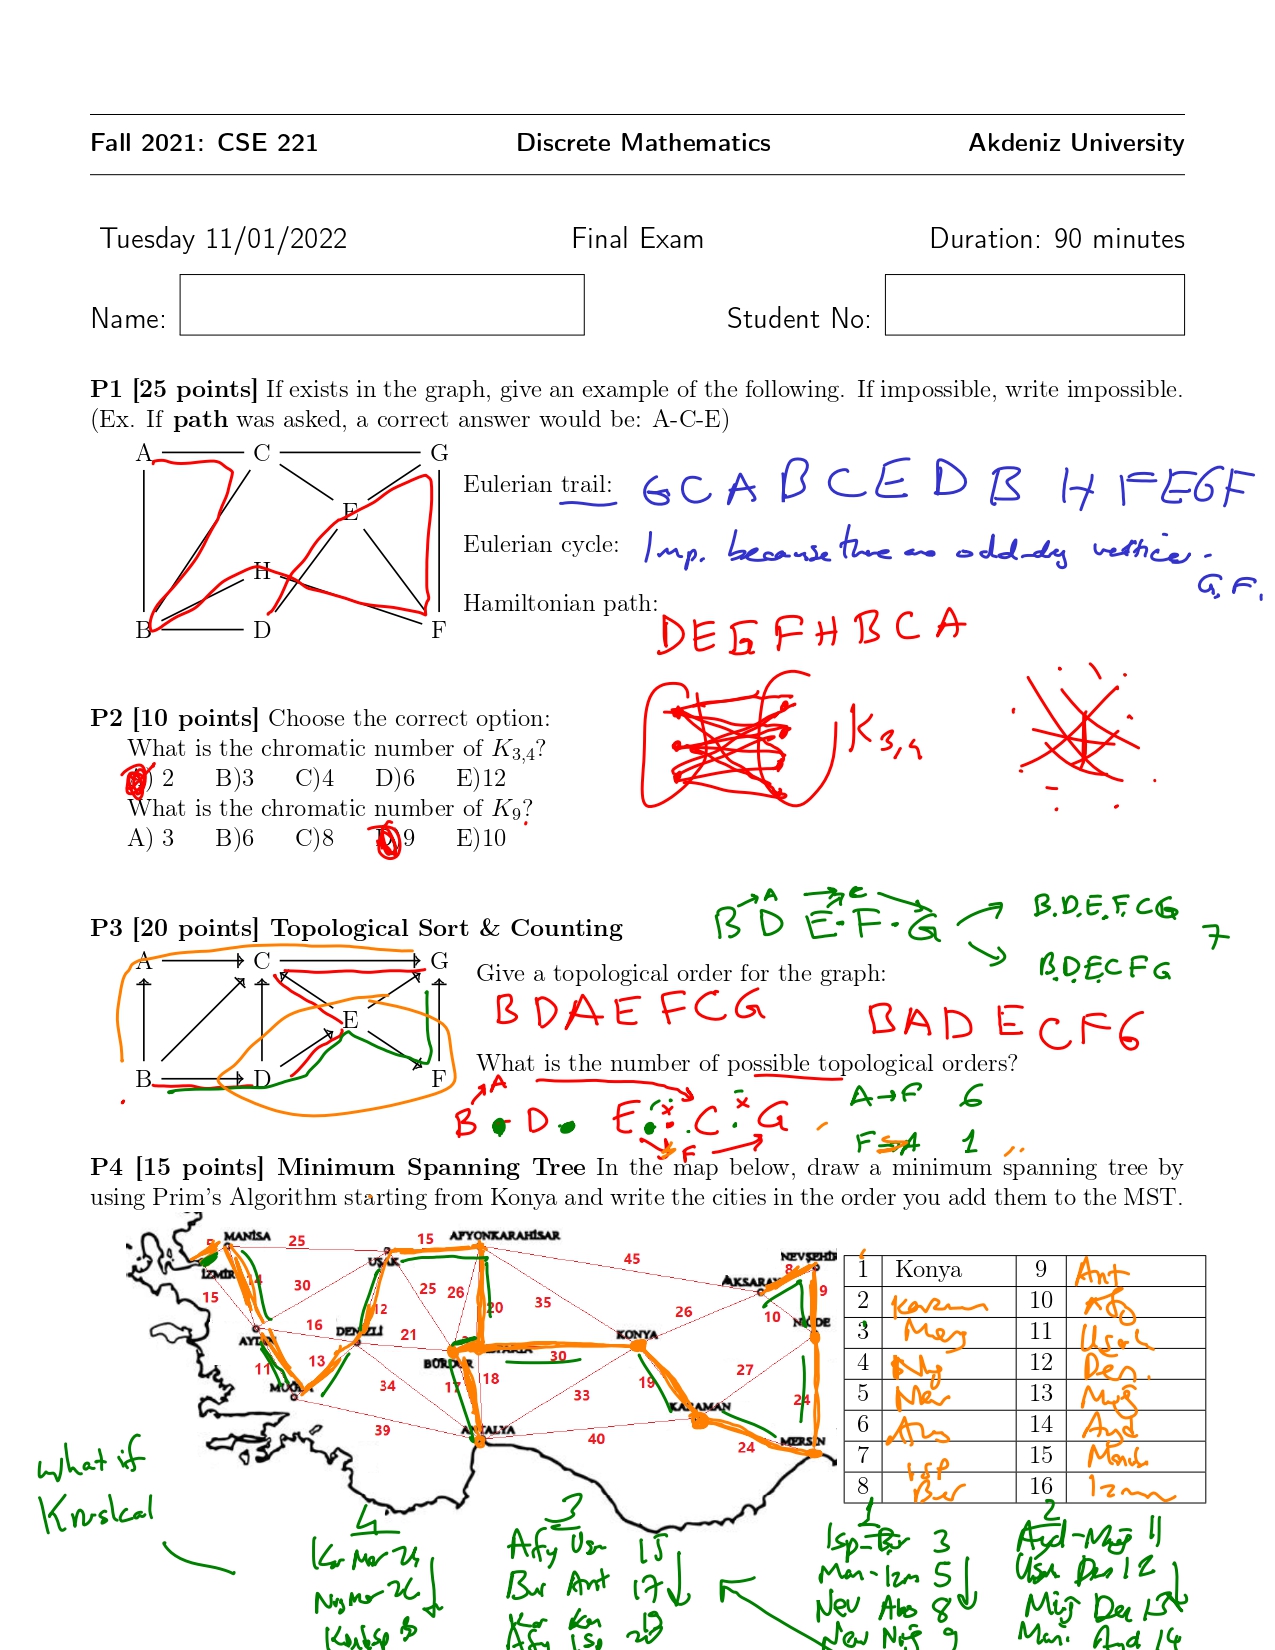 Fall 2021: CSE 221 Discrete Mathematics Akdeniz University
Tuesday 11/01/2022 Final Exam Duration: 90 minutes
Name: Student No:
P1 [25 points] If exists in the graph, give an example of the following. If impossible, write impossible.
(Ex. If path was asked, a correct answer would be: A-C-E)
A C G
E
H
B D F
Eulerian trail: G C A B C E D B H F E G F
Eulerian cycle: Imp. because there are odd-deg vertices.
G, F.
Hamiltonian path:
D E G F H B C A
P2 [10 points] Choose the correct option:
What is the chromatic number of K3,4?
A) 2 B)3 C)4 D)6 E)12
What is the chromatic number of K9?
A) 3 B)6 C)8 D)9 E)10
K3,4
P3 [20 points] Topological Sort & Counting
B D E F G
A C
B.D.E.F.C G
B.D.E.C F G
7
A C G
E
B D F
Give a topological order for the graph:
B D A E F C G
B A D E C F G
What is the number of possible topological orders?
B D E C G
A F
A→F 6
F→A 1
P4 [15 points] Minimum Spanning Tree In the map below, draw a minimum spanning tree by
using Prim's Algorithm starting from Konya and write the cities in the order you add them to the MST.
MANİSA 25 15 AFYONKARAHİSAR
UŞAK 45 NEVŞEHİR
İZMİR 14 30 25 26 AKSARAY 8 9
15 12 20 35 26 10 NİĞDE
AYDIN 16 DENİZLİ 21 KONYA
11 13 BURDUR 30 27
MUĞLA 34 17 18 33 19 24
39 ANTALYA 40 KARAMAN 24 MERSİN
1 Konya 9 Ant
2 Karam 10 Afy
3 Mers 11 Uşak
4 Niğ 12 Den.
5 Nev 13 Muğ
6 14 Ayd
7 Isp 15 Manis
8 Bur 16 Izm
What if
Kruskal
4
Kar Mer 24
3
Afy Uşa 15
Bur Ant 17
Kar Kon 19
Afy Isp 20
1
Isp-Bur 3
Man-Izm 5
Nev Aks 8
Nev Niğ 9
2
Ayd-Muğ 11
Uşa Den 12
Muğ Den 13
Mani Ayd 14